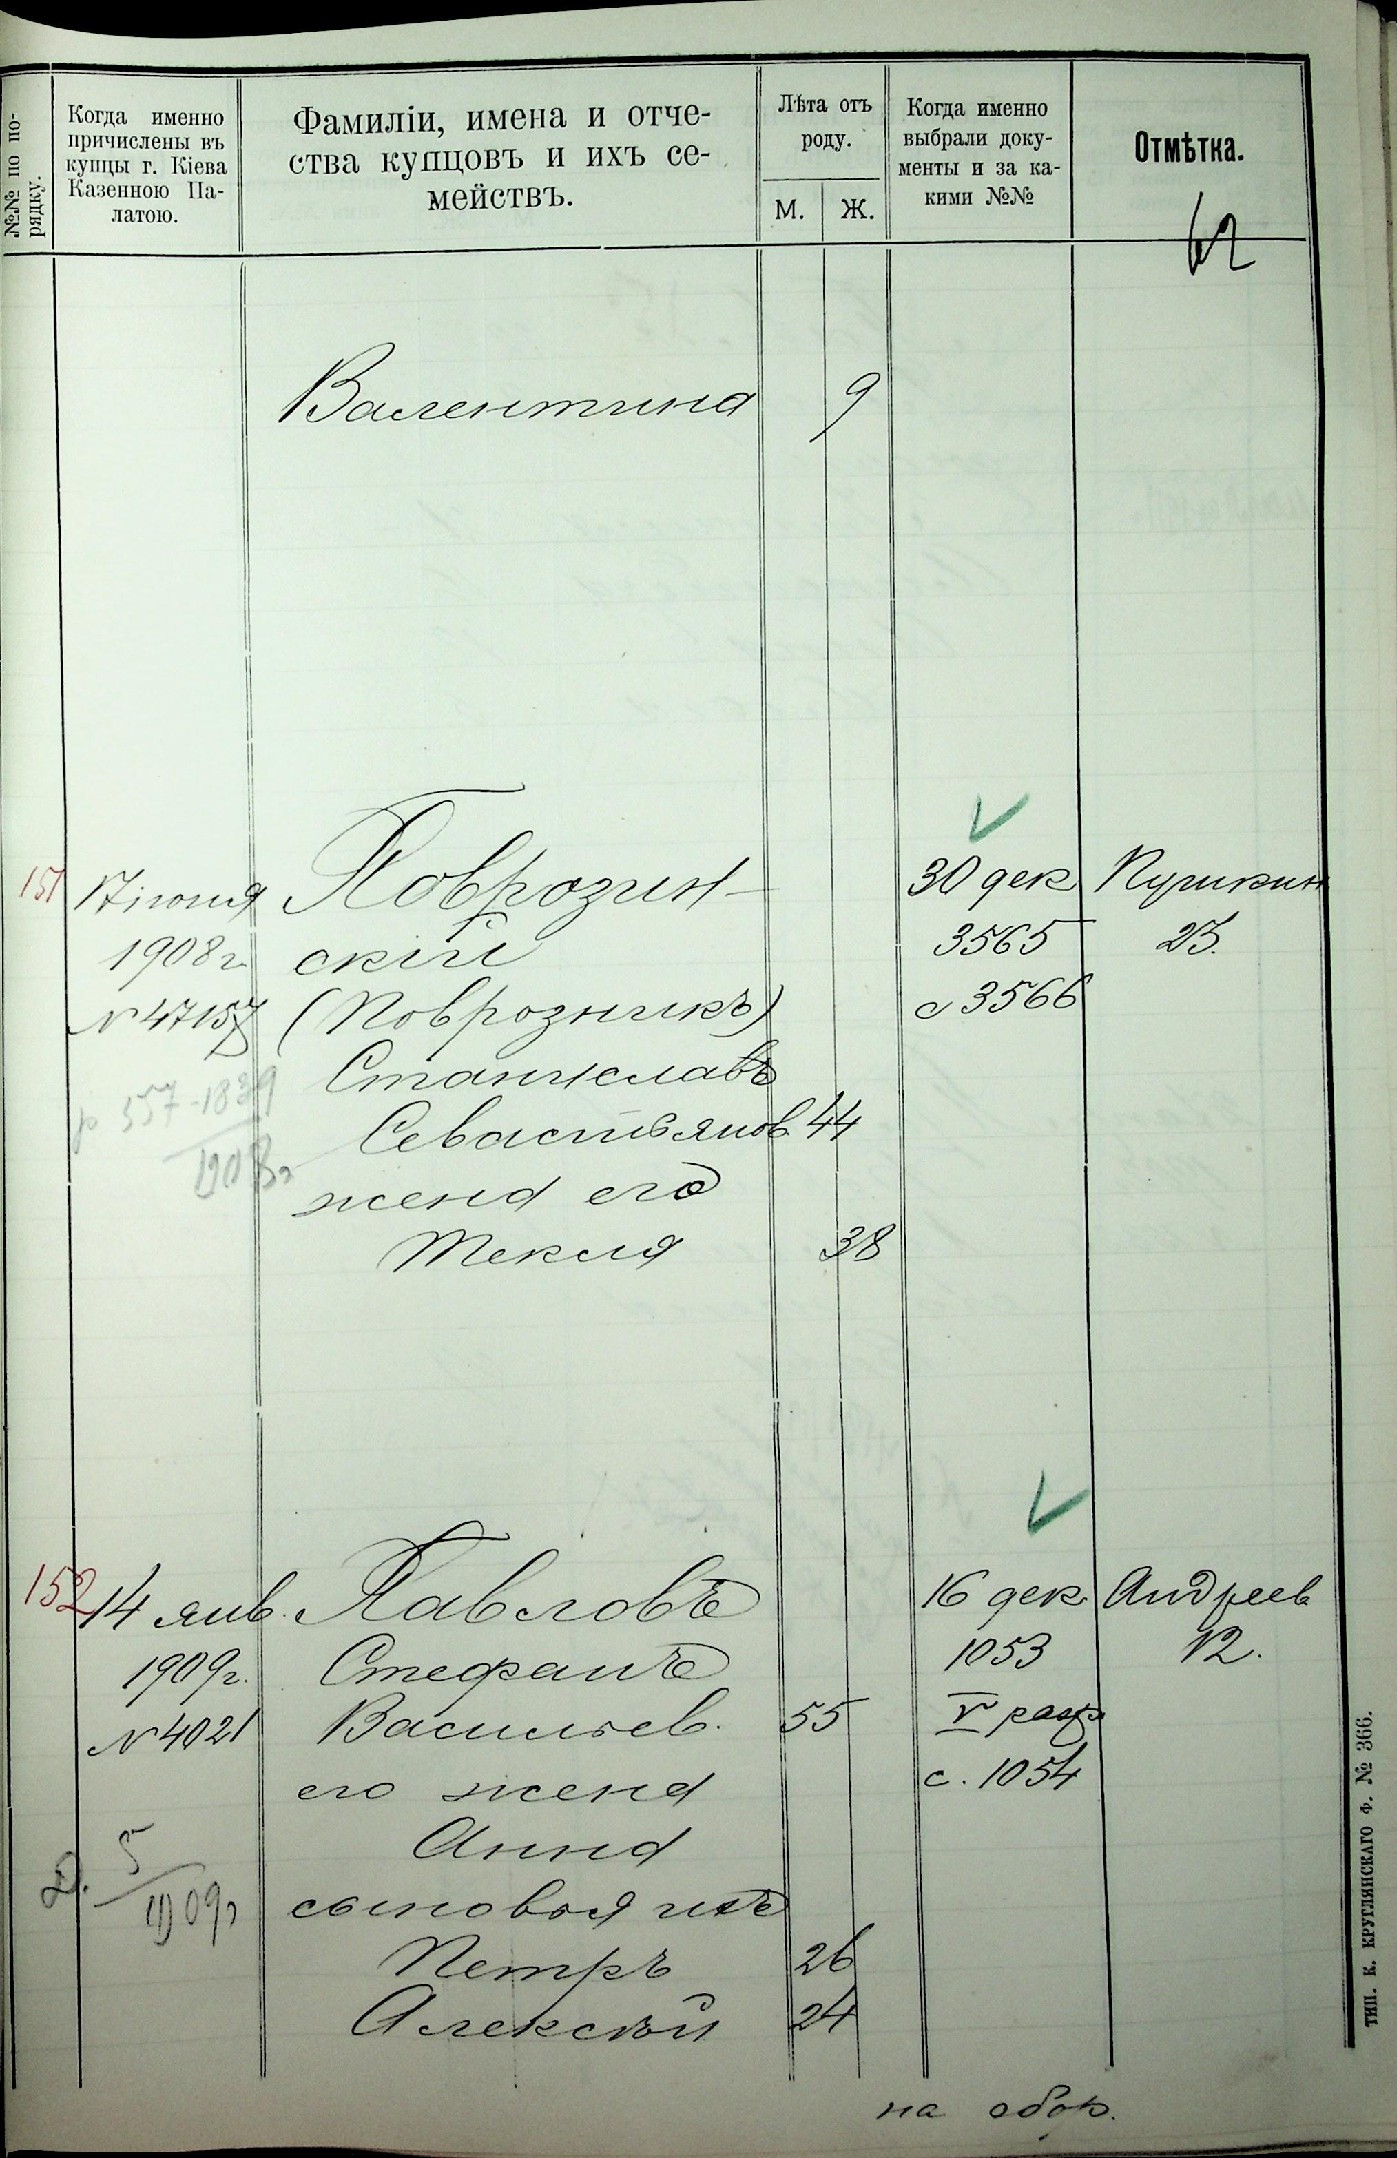 №№ по по-
рядку.
Когда именно
причислены въ
купцы г. Кіева
Казенною Па-
латою.
Фамиліи, имена и отче-
ства купцовъ и ихъ се-
мействъ.
Лѣта отъ
роду.
М. Ж.
Когда именно
выбрали доку-
менты и за ка-
кими №№
Отмѣтка.
62
Валентина 9
151 17 іюня Поврозин- 30 дек Пушкин
1908 г. скій 3565 23.
№ 47157 (Поврозникъ) с 3566
Станиславъ
р 357-1839
Севастьянов 44
1908 г
жена его
Текля 38
152 14 янв. Павловъ 16 дек Андреев
1909 г. Стефанъ 1053 12.
№ 4021 Васильев. 55 V разр
его жена с. 1054
Анна
5
сыновья ихъ
09 г
Петръ 26
Алексѣй 24
на обор.
ТИП. К. КРУГЛЯНСКАГО Ф. № 366.